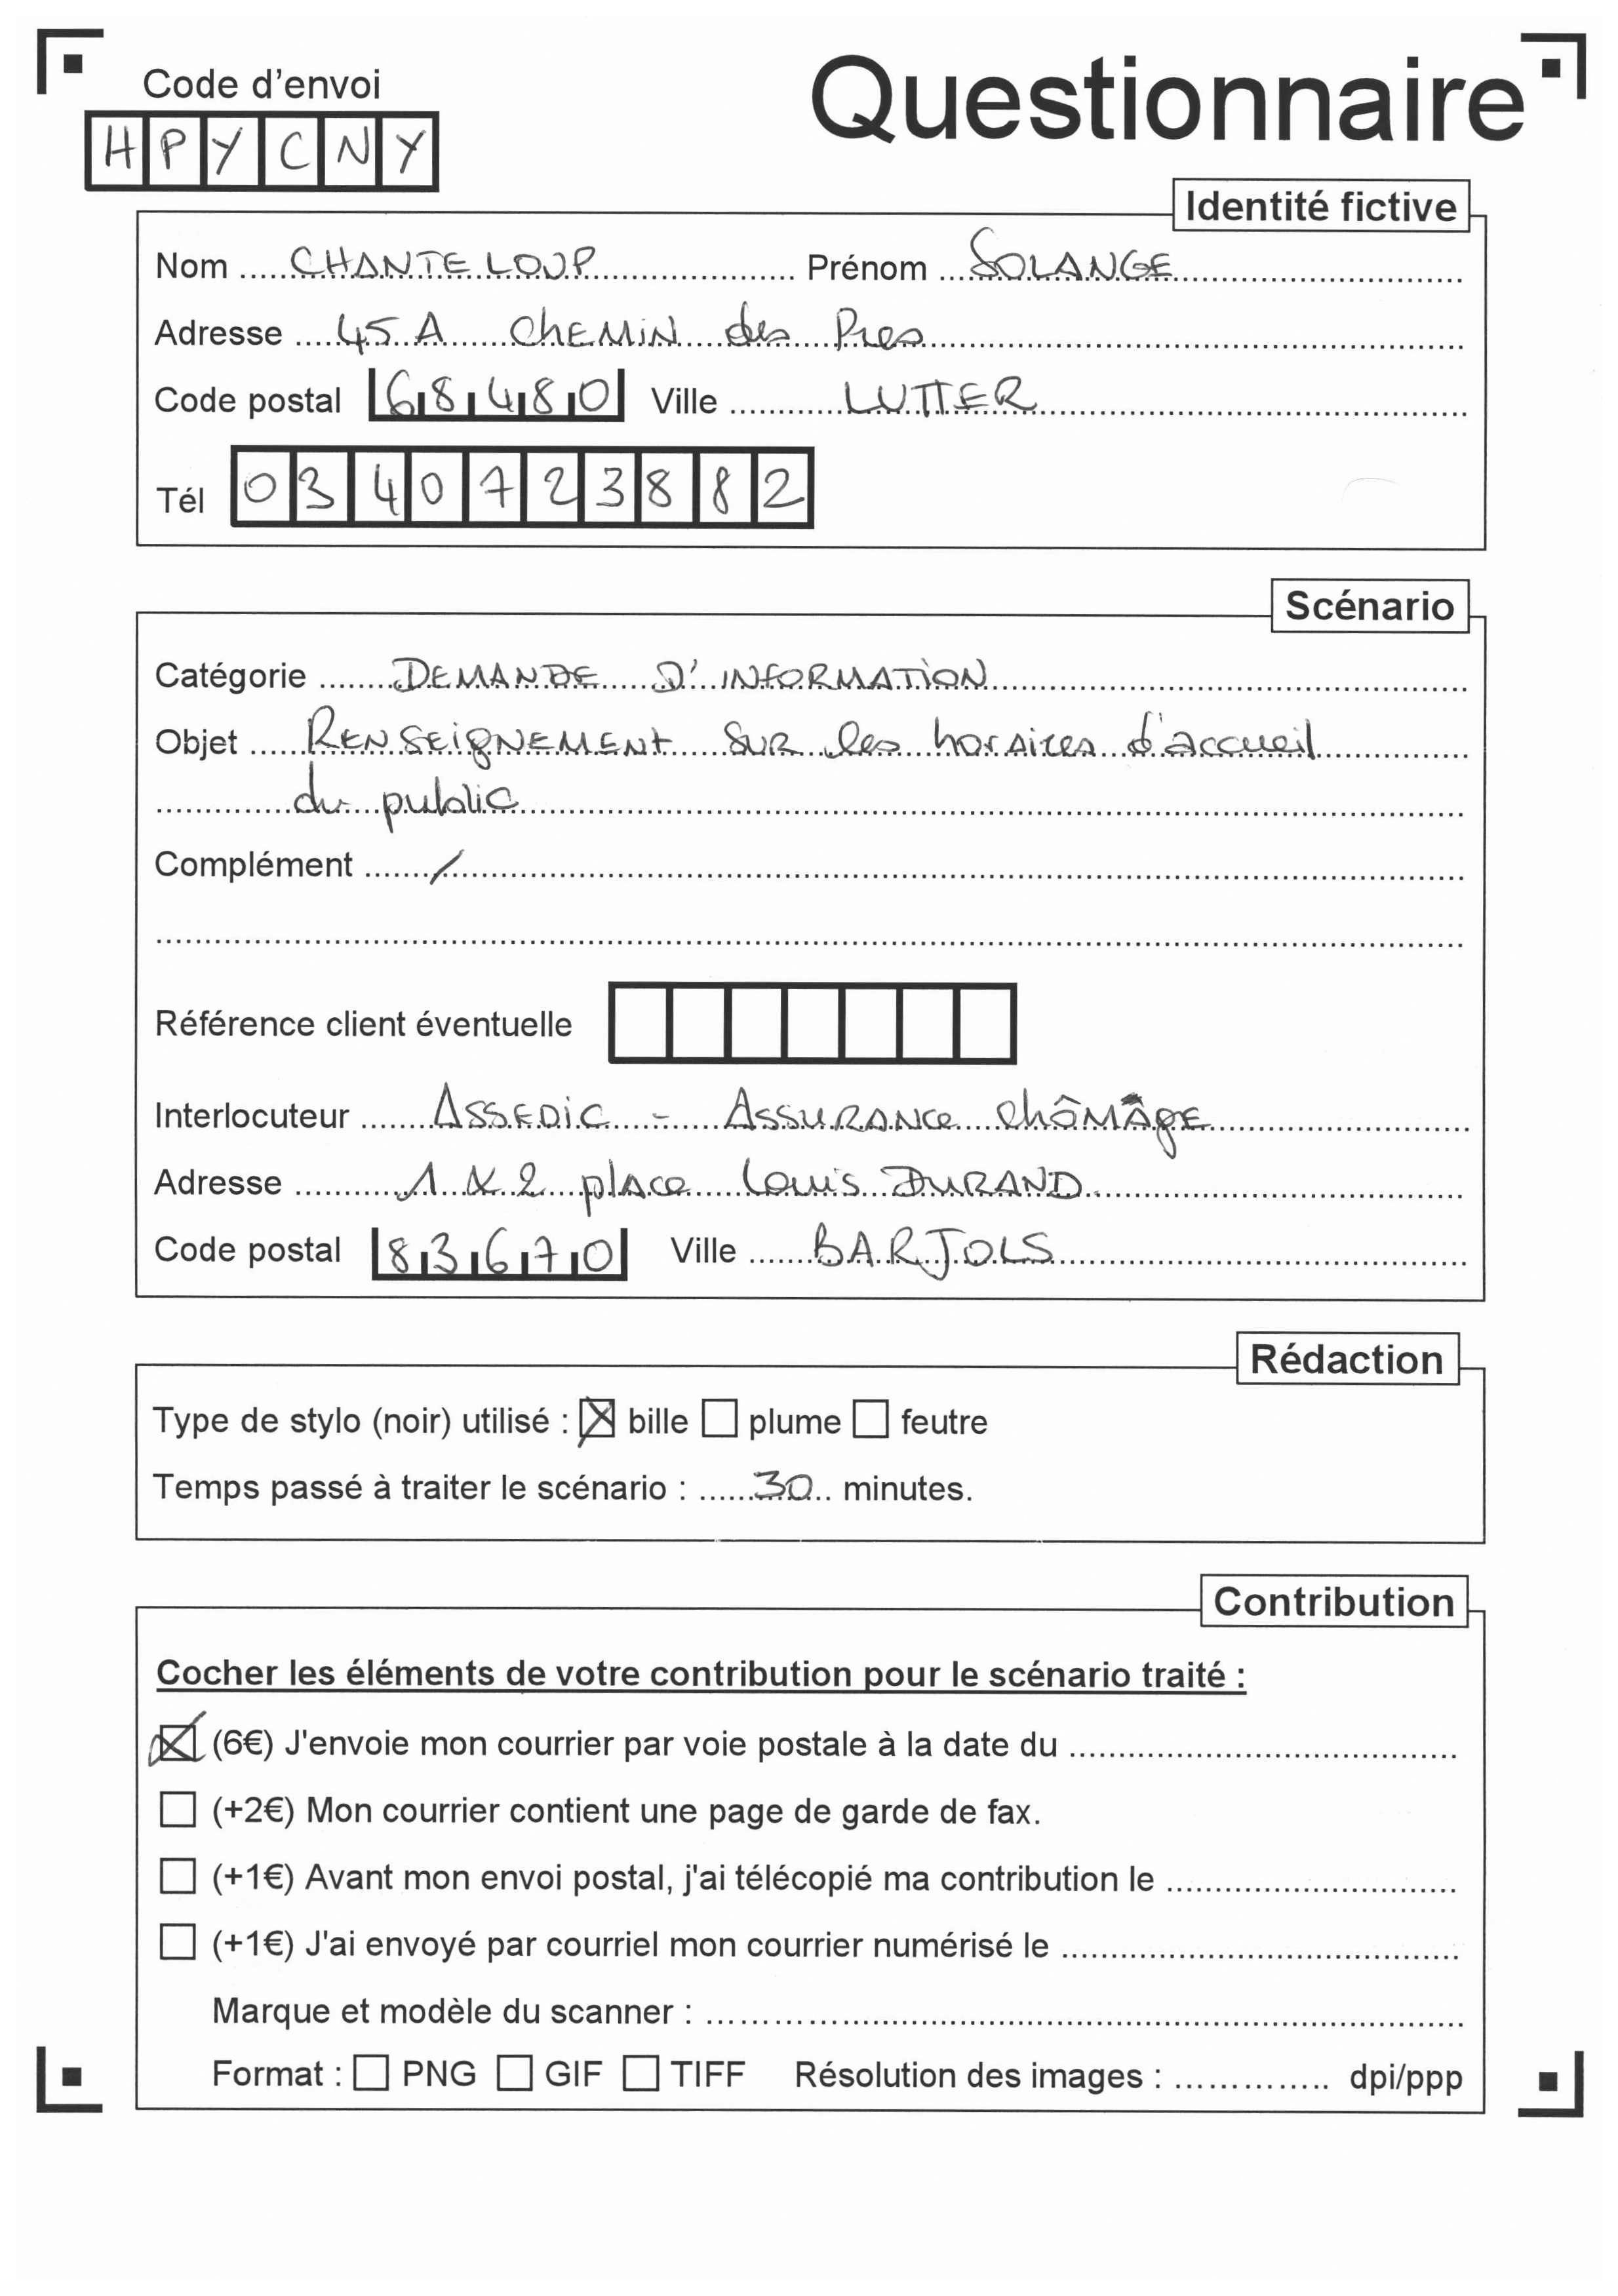 Code d'envoi
Questionnaire
HPYCNY
Identité fictive
Nom CHANTELOUP Prénom SOLANGE
Adresse 45 A CHEMIN des Pres
Code postal 68480 Ville LUTTER
Tél 0340723882
Scénario
Catégorie DEMANDE D'INFORMATION
Objet RENSEIGNEMENT SUR les horaires d'accueil
du public
Complément /
Référence client éventuelle
Interlocuteur ASSEDIC - ASSURANCE chômâge
Adresse 1 & 2 place Louis DURAND
Code postal 83670 Ville BARJOLS
Rédaction
Type de stylo (noir) utilisé : bille plume feutre
Temps passé à traiter le scénario : 30 minutes.
Contribution
Cocher les éléments de votre contribution pour le scénario traité :
(6€) J'envoie mon courrier par voie postale à la date du
(+2€) Mon courrier contient une page de garde de fax.
(+1€) Avant mon envoi postal, j'ai télécopié ma contribution le
(+1€) J'ai envoyé par courriel mon courrier numérisé le
Marque et modèle du scanner :
Format : PNG GIF TIFF Résolution des images : dpi/ppp